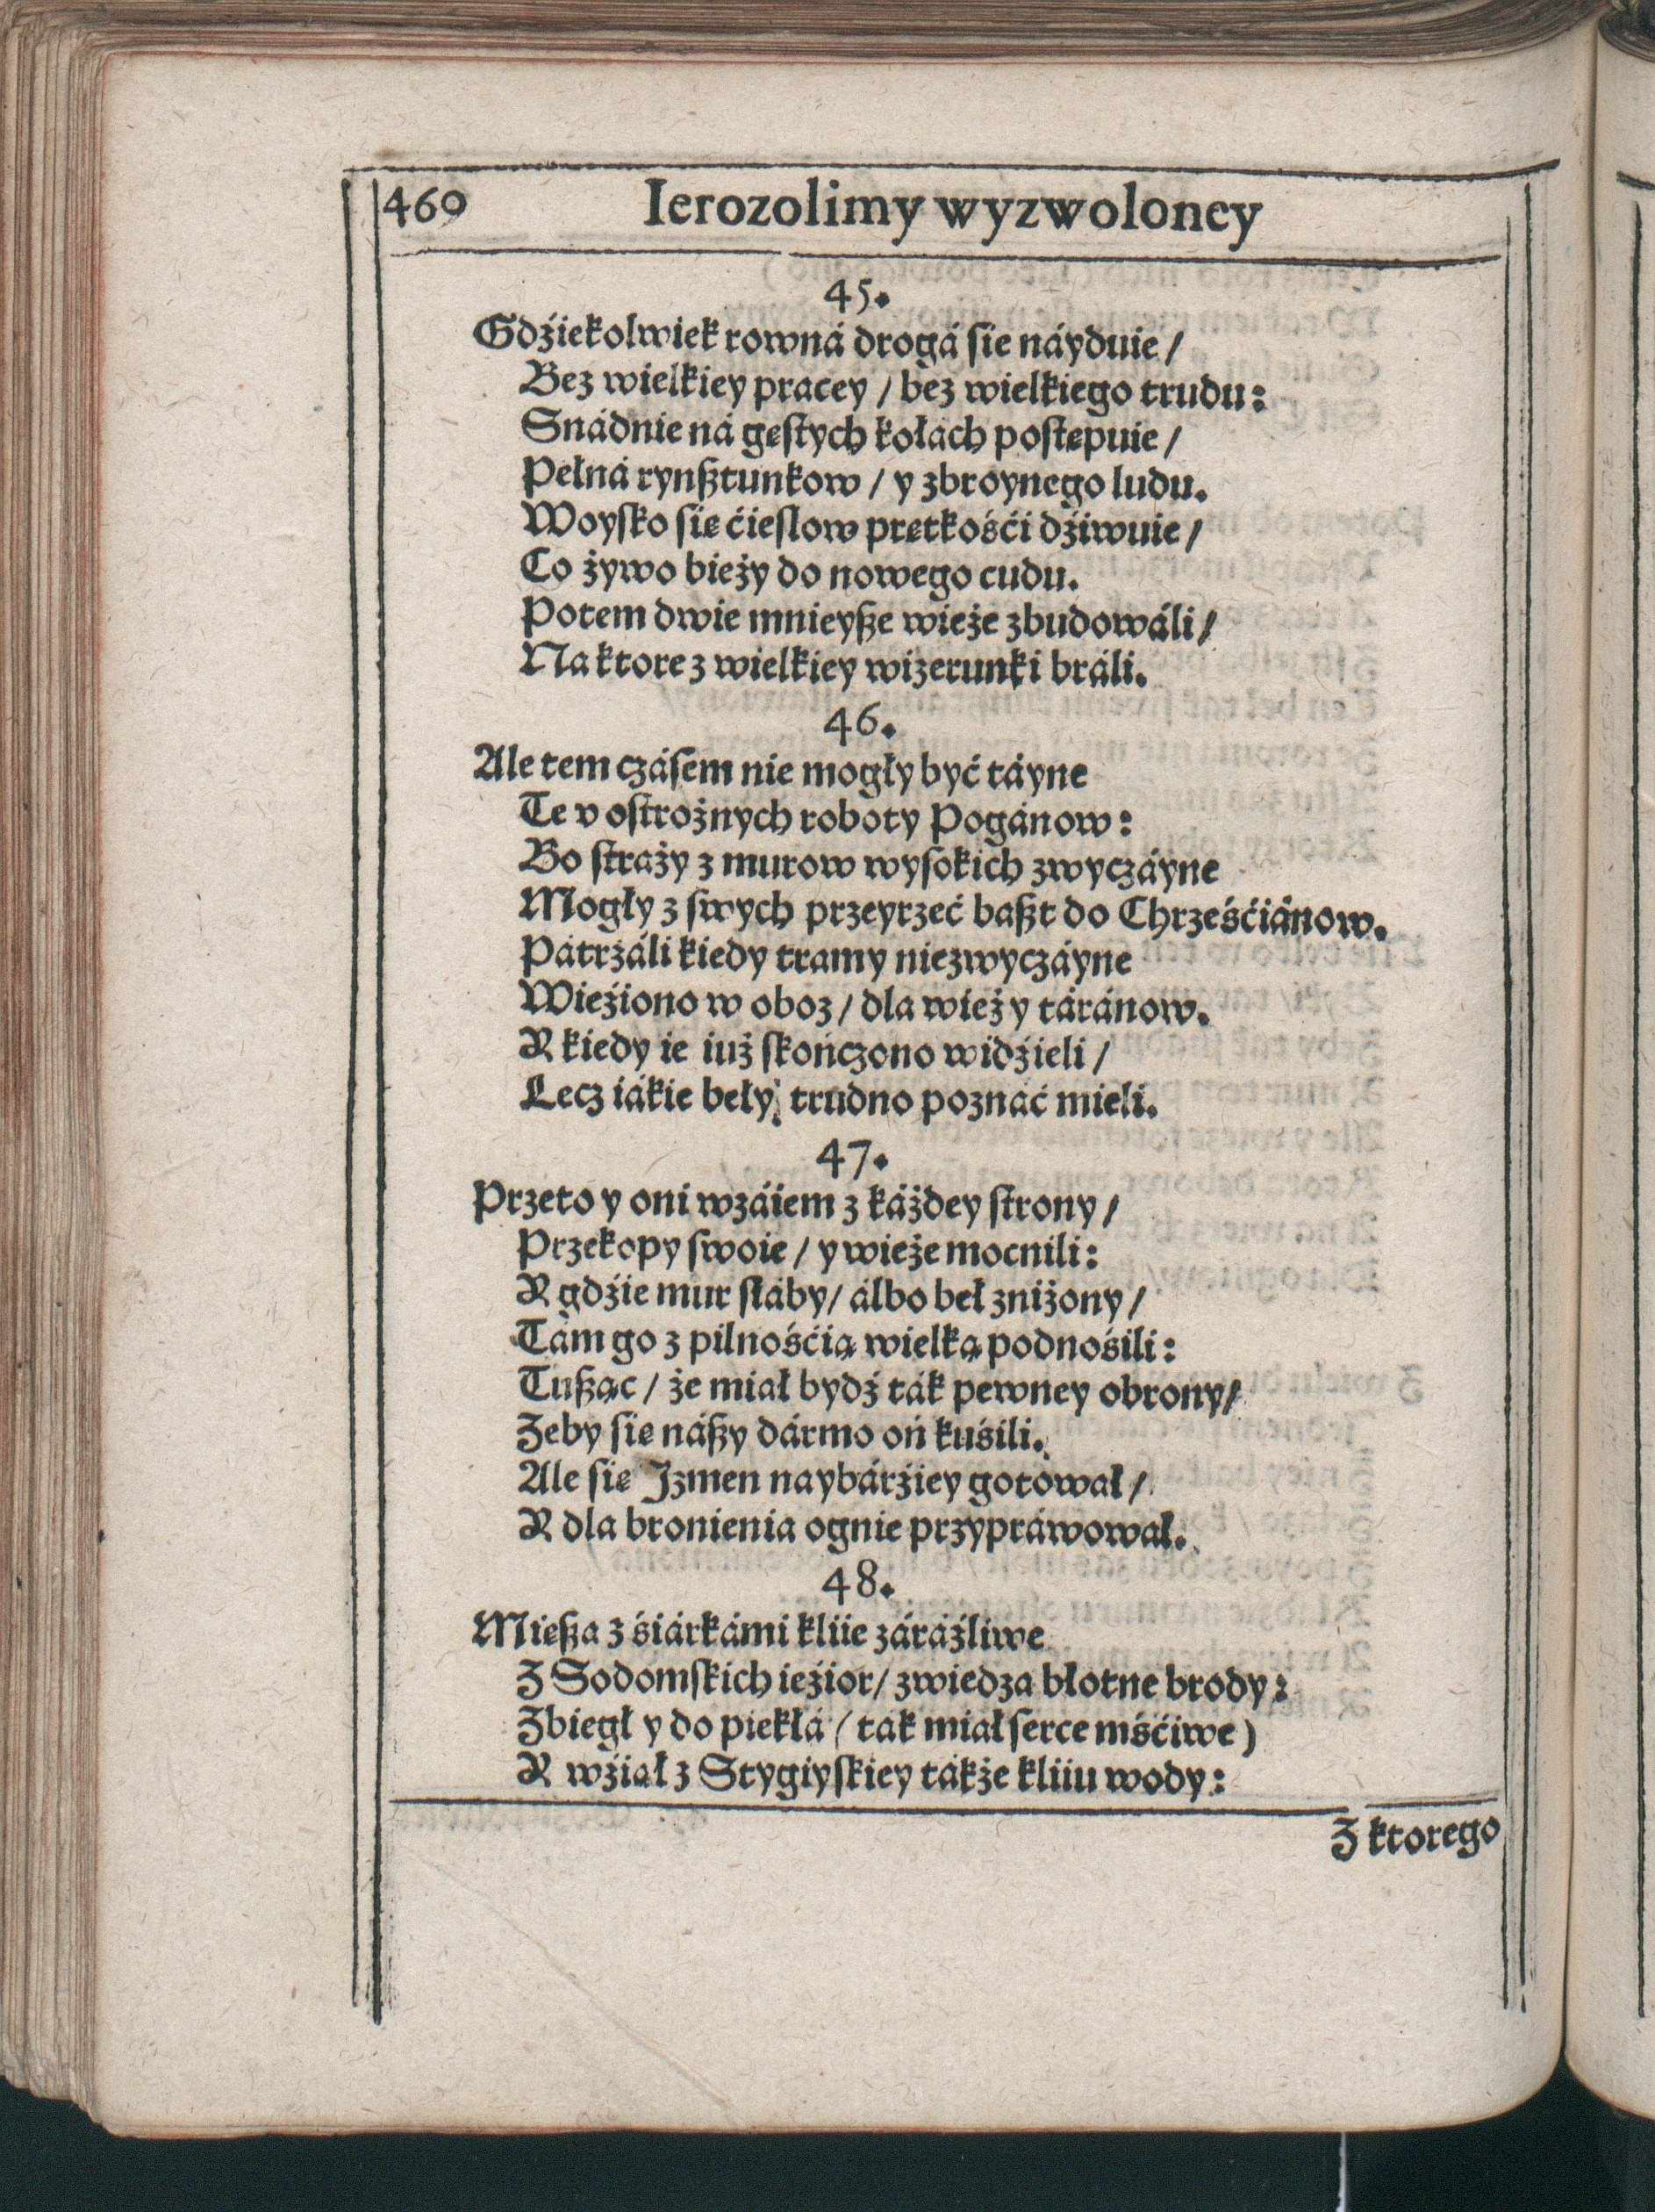 460 Ierozolimy wyzwoloney
45.
Gdźiekolwiek rowná drogá sie náyduie /
Bez wielkiey pracey / bez wielkiego trudu:
Snádnie ná gęstych kołách postępuie /
Pełná rynßtunkow / y zbroynego ludu.
Woysko się ćieslow prętkośći dźiwuie /
Co żywo bieży do nowego cudu.
Potem dwie mnieyße wieże zbudowáli /
Na ktore z wielkiey wizerunki bráli.
46.
Ale tem czásem nie mogły być táyne
Te v ostrożnych roboty Pogánow:
Bo straży z murow wysokich zwyczáyne
Mogły z swych przeyrzeć baßt do Chrześćiánow.
Pátrzáli kiedy tramy niezwyczáyne
Wieźiono w oboz / dla wieży táránow.
Y kiedy ie iuż skończono widźieli /
Lecz iákie beły, trudno poznáć mieli.
47.
Przeto y oni wzáiem z káżdey strony /
Przekopy swoie / y wieże mocnili:
Y gdźie mur słáby / álbo beł zniżony /
Tám go z pilnośćią wielką podnośili:
Tußąc / że miał bydź ták pewney obrony /
Zeby się náßy dármo oń kuśili.
Ale się Izmen naybárźiey gotował /
Y dla bronienia ognie przypráwował.
48.
Mießa z śiárkámi kliie záráźliwe
Z Sodomskich ieźior / zwiedza błotne brody:
Zbiegł y do piekłá (ták miał serce mśćiwe)
Y wźiął z Stygiyskiey tákże kliiu wody:
Z ktorego